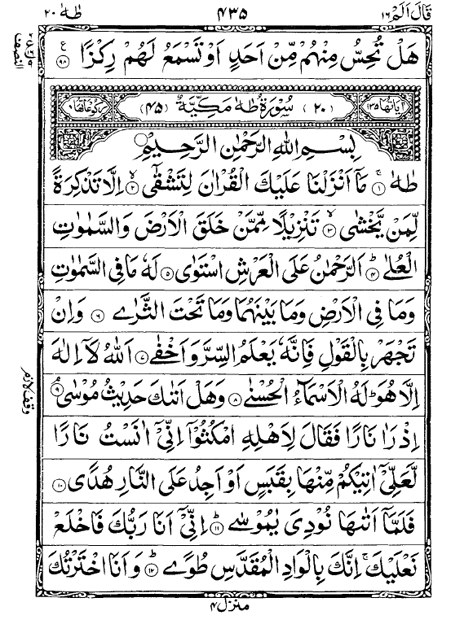 قَالَ اَلَمْ ١٦ ٤٣٥ طٰهٰ ٢٠
هَلْ تُحِسُّ مِنْهُمْ مِّنْ اَحَدٍ اَوْ تَسْمَعُ لَهُمْ رِكْزًا ۝٩٨
اٰیاتها ١٣٥ (٢٠) سُوْرَةُ طٰهٰ مَكِّيَّةٌ (٤٥) رکوعاتها ٨
بِسْمِ اللّٰهِ الرَّحْمٰنِ الرَّحِيْمِ
طٰهٰ ۝١ مَاۤ اَنْزَلْنَا عَلَيْكَ الْقُرْاٰنَ لِتَشْقٰۤى ۝٢ اِلَّا تَذْكِرَةً
لِّمَنْ يَّخْشٰى ۝٣ تَنْزِيْلًا مِّمَّنْ خَلَقَ الْاَرْضَ وَالسَّمٰوٰتِ
الْعُلٰى ۝٤ اَلرَّحْمٰنُ عَلَى الْعَرْشِ اسْتَوٰى ۝٥ لَهٗ مَا فِى السَّمٰوٰتِ
وَمَا فِى الْاَرْضِ وَمَا بَيْنَهُمَا وَمَا تَحْتَ الثَّرٰى ۝٦ وَاِنْ
تَجْهَرْ بِالْقَوْلِ فَاِنَّهٗ يَعْلَمُ السِّرَّ وَاَخْفٰى ۝٧ اَللّٰهُ لَاۤ اِلٰهَ
اِلَّا هُوَ ؕ لَهُ الْاَسْمَآءُ الْحُسْنٰى ۝٨ وَهَلْ اَتٰىكَ حَدِيْثُ مُوْسٰى ۝٩
اِذْ رَاٰ نَارًا فَقَالَ لِاَهْلِهِ امْكُثُوْۤا اِنِّىْۤ اٰنَسْتُ نَارًا
لَّعَلِّىْۤ اٰتِيْكُمْ مِّنْهَا بِقَبَسٍ اَوْ اَجِدُ عَلَى النَّارِ هُدًى ۝١٠
فَلَمَّاۤ اَتٰىهَا نُوْدِىَ يٰمُوْسٰى ۝١١ اِنِّىْۤ اَنَا رَبُّكَ فَاخْلَعْ
نَعْلَيْكَ ۚ اِنَّكَ بِالْوَادِ الْمُقَدَّسِ طُوًى ۝١٢ وَاَنَا اخْتَرْتُكَ
منزل ٤
وقف لازم